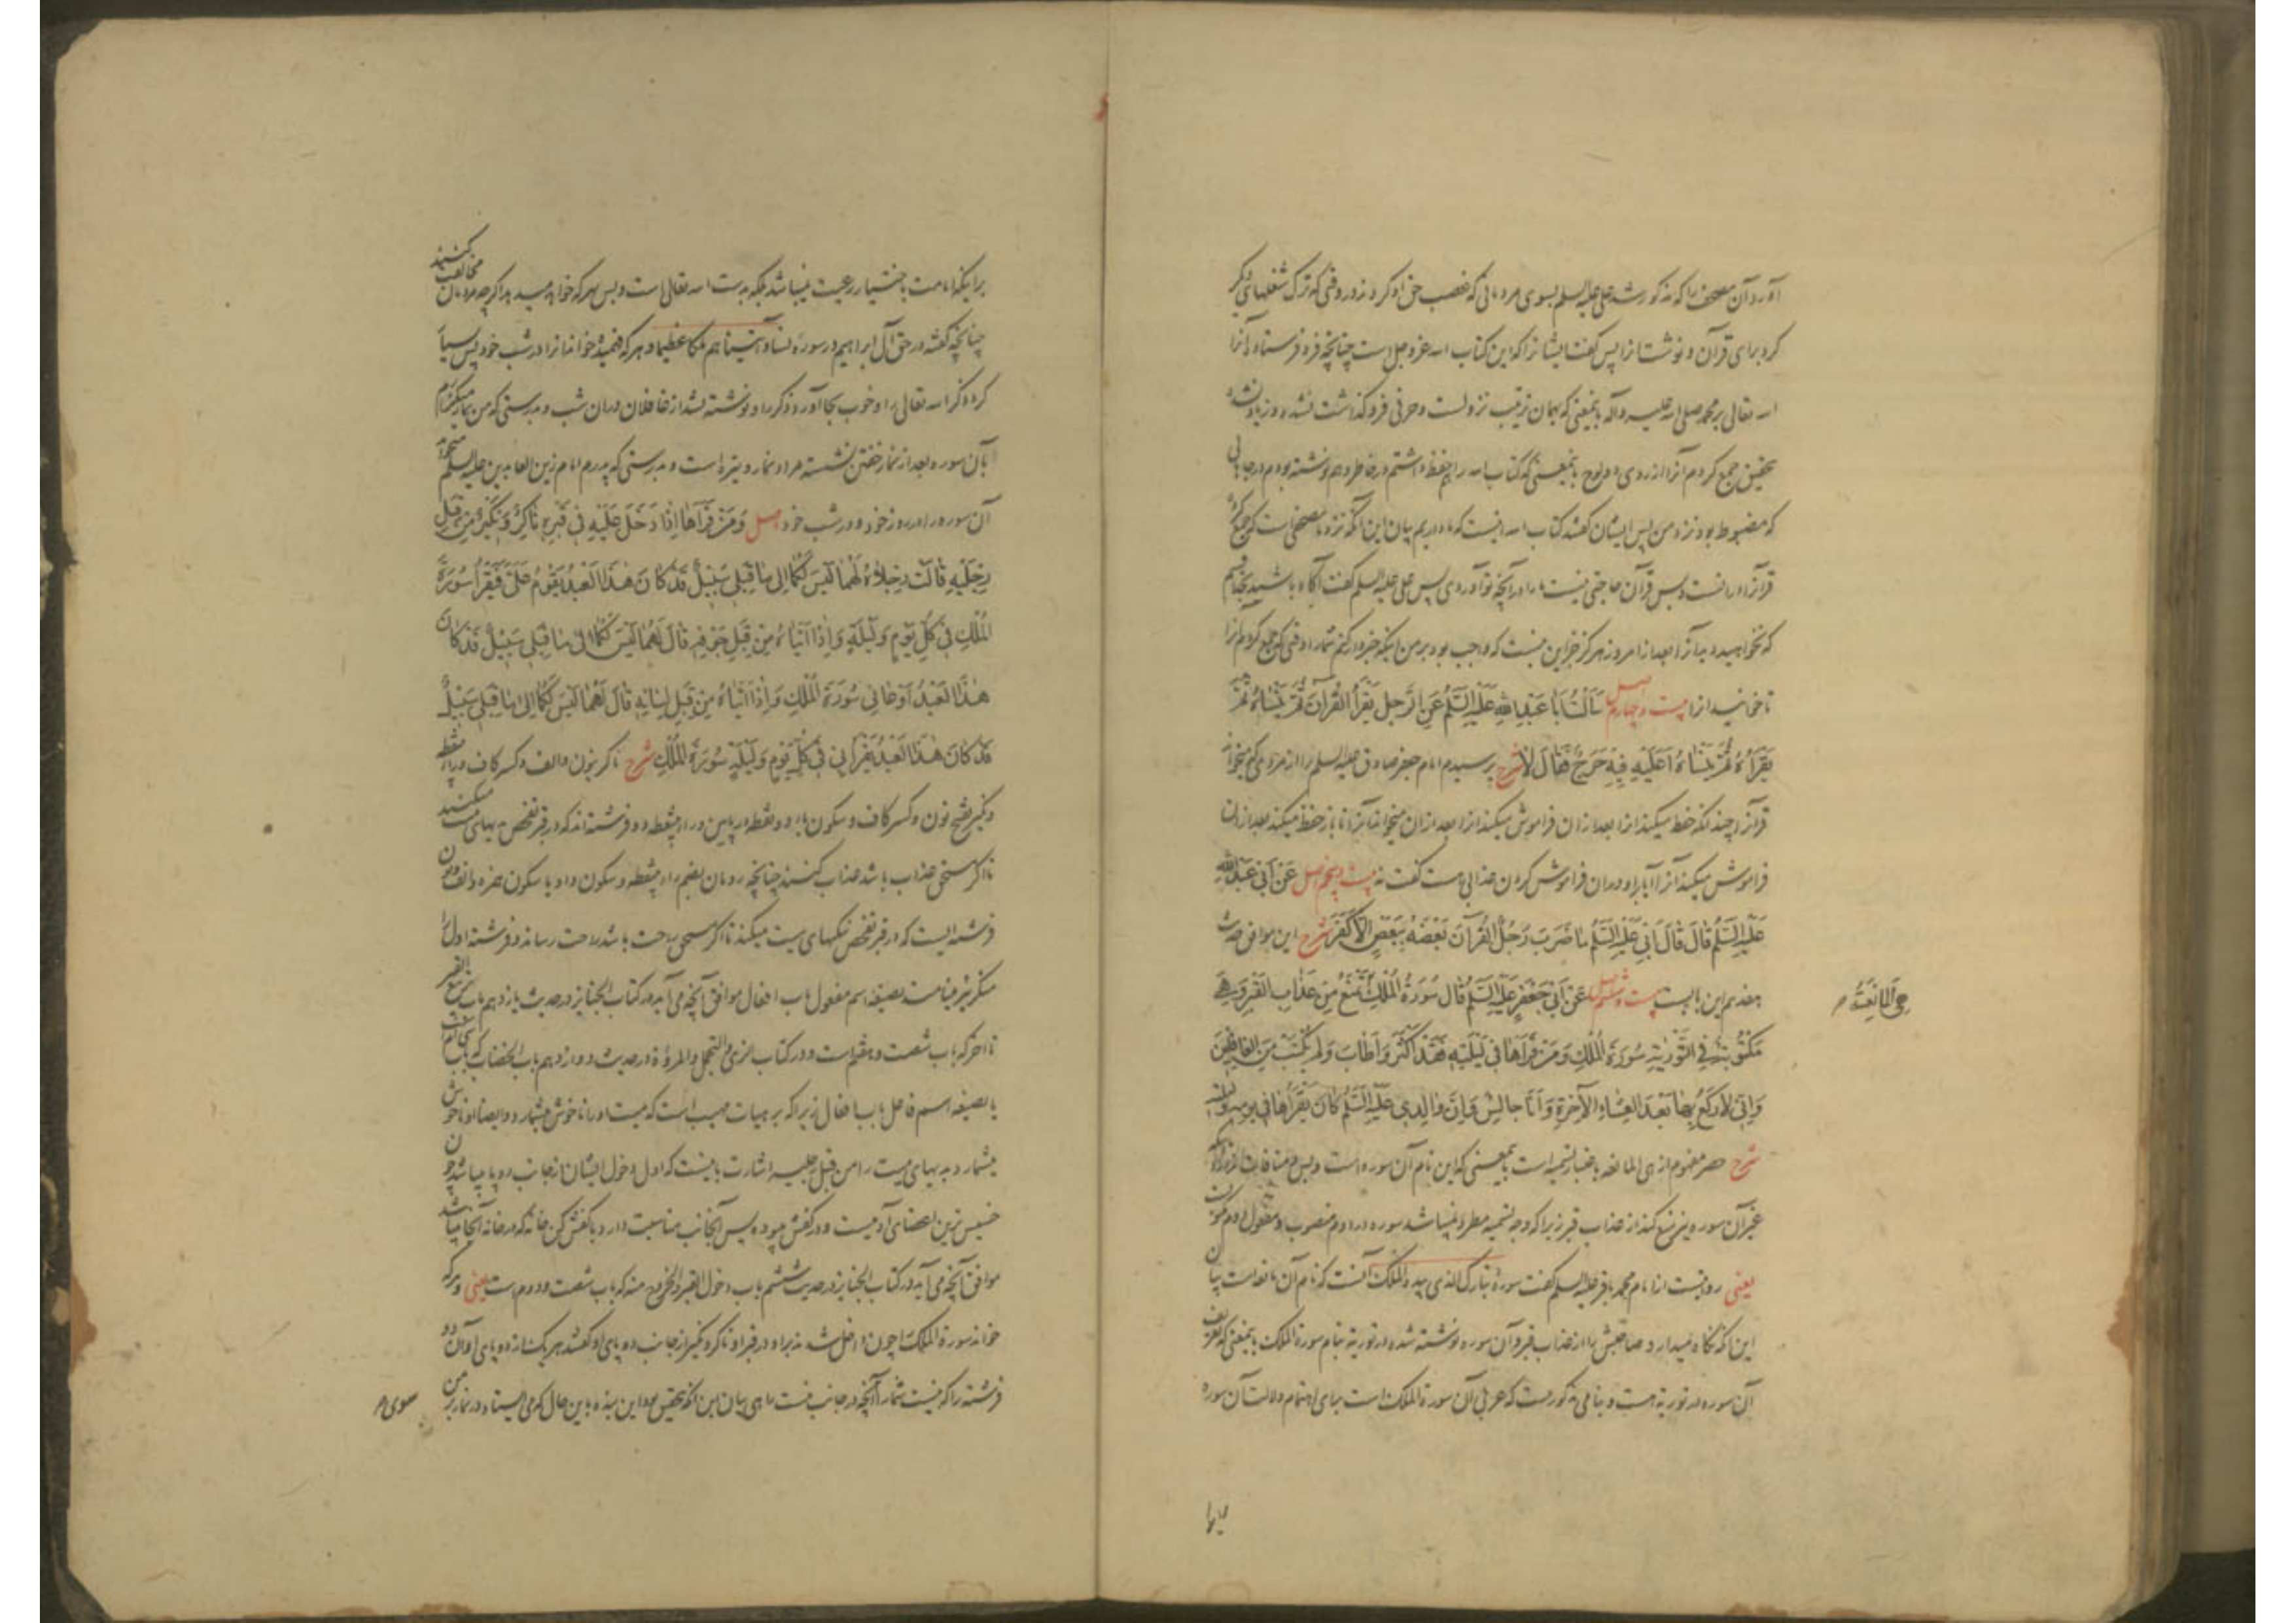 آورد آن مصحف را که مذکور شد علی علیه السلم بسوی مردمانی که غصب حق او کردند در وقتی که ترک شغلهای دیگر
کرد برای قرآن و نوشت آنرا پس گفت ایشانرا که این کتاب الله عز و جل است چنانچه فرو فرستاد آنرا
الله تعالی بر محمد صلی الله علیه و آله بایمعنی که بهمان ترتیب نزولست و حرفی فرو گذاشت نشده و زیاد نشده
بتحقیق جمع کردم آنرا از روی دو لوح بایمعنی که کتاب الله را هم بحفظ داشتم در خاطر و هم نوشته بودم در جایی
که مضبوط بود نزد من پس ایشان گفتند کتاب الله اینست که ما داریم بیان این آنکه نزد ما مصحفی است که جمع کرده
قرآن در آنست و بس قرآن حاجتی نیست ما را در آنچه تو آوردی پس علی علیه السلم گفت آگاه باشید بخدا قسم
که نخواهید دید آنرا بعد از امروز هرگز جز این نیست که واجب بود بر من اینکه خبردار کنم شما را وقتی که جمع کردم آنرا
تا خوانید آنرا بیست و چهارم اصل سَاَلْتُ اَبَا عَبْدِ اللهِ عَلَیْهِ السَّلَمُ عَنِ الرَّجُلِ یَقْرَأُ الْقُرْآنَ ثُمَّ یَنْسَاهُ ثُمَّ
یَقْرَأُهُ ثُمَّ یَنْسَاهُ اَعَلَیْهِ فِیْهِ حَرَجٌ فَقَالَ لَا شرح پرسیدم امام جعفر صادق علیه السلم را از مردی که میخواند
قرآنرا چندانکه حفظ میکند آنرا بعد از آن فراموش میکند آنرا بعد از آن میخواند آنرا تا باز حفظ میکند بعد از آن
فراموش میکند آنرا آیا بر او در آن فراموش کردن عذابی هست گفت نه بیست و پنجم اصل عَنْ اَبِی عَبْدِ اللهِ
عَلَیْهِ السَّلَمُ قَالَ قَالَ اَبِی عَلَیْهِ السَّلَمُ مَا ضَرَبَ رَجُلٌ الْقُرْآنَ بَعْضَهُ بِبَعْضٍ اِلَّا کَفَرَ شرح این موافق حدیث
هفدهم این بابست بیست و ششم اصل عَنْ اَبِی جَعْفَرٍ عَلَیْهِ السَّلَمُ قَالَ سُورَةُ الْمُلْکِ تَمْنَعُ مِنْ عَذَابِ الْقَبْرِ وَ هِیَ
هِیَ الْمَانِعَةُ
مَکْتُوبَةٌ فِی التَّوْرٰیةِ سُورَةَ الْمُلْکِ وَ مَنْ قَرَأَهَا فِی لَیْلَتِهِ فَقَدْ اَکْثَرَ وَ اَطَابَ وَ لَمْ یُکْتَبْ مِنَ الْغَافِلِیْنَ
وَ اِنِّی لَاَرْکَعُ بِهَا بَعْدَ الْعِشَاءِ الْآخِرَةِ وَ اَنَا جَالِسٌ وَ اِنَّ وَالِدِی عَلَیْهِ السَّلَمُ کَانَ یَقْرَأُهَا فِی یومه و لیلته
شرح حصر مفهوم از هی المانعه باعتبار تسمیه است بایمعنی که این نام آن سوره است و بس و منافات ندارد با آنکه
غیر آن سوره نیز منع کند از عذاب قبر زیرا که وجه تسمیه مطرد نمیباشد سوره در دوم منصوب و مفعول دوم مکتوبست
یعنی روایتست از امام محمد باقر علیه السلم گفت سورهٔ تبارک الذی بیده الملک آنست که نام آن مانعه است بیان
این آنکه نگاه میدارد صاحبش را از عذاب قبر و آن سوره نوشته شده در توریة بنام سورة الملک بایمعنی که تعریف
آن سوره در توریة هست و بنامی مذکور است که عربی آن سورة الملک است برای اهتمام و دلالت آن سوره
بر اینکه امامت باختیار رعیت نمیباشد بلکه بدست الله تعالی است و بس بهر که خواهد میدهد اگر چه مردمان مخالفت کنند
چنانچه گفته در حق آل ابراهیم در سورهٔ نسا و آتیناهم ملکا عظیما و هر که فهمیده خواند آنرا در شب خود پس بسیار
کرده ذکر الله تعالی را و خوب بجا آورده ذکر را و نوشته نشد از غافلان در آن شب و بدرستی که من نماز میگزارم
بآن سوره بعد از نماز خفتن نشسته مراد نماز وتیره است و بدرستی که پدرم امام زین العابدین علیه السلم میخواند
آن سوره را در روز خود و در شب خود اصل وَ مَنْ قَرَأَهَا اِذَا دَخَلَ عَلَیْهِ فِی قَبْرِهِ نَاکِرٌ وَ نَکِیْرٌ مِنْ قِبَلِ
رِجْلَیْهِ قَالَتْ رِجْلَاهُ لَهُمَا لَیْسَ لَکُمَا اِلٰی مَا قِبَلِی سَبِیْلٌ قَدْ کَانَ هٰذَا الْعَبْدُ یَقُوْمُ عَلَیَّ فَیَقْرَأُ سُوْرَةَ
الْمُلْکِ فِی کُلِّ یَوْمٍ وَ لَیْلَةٍ وَ اِذَا اَتَیَاهُ مِنْ قِبَلِ جَوْفِهِ قَالَ لَهُمَا لَیْسَ لَکُمَا اِلٰی مَا قِبَلِی سَبِیْلٌ قَدْ کَانَ
هٰذَا الْعَبْدُ اَوْعَانِی سُوْرَةَ الْمُلْکِ وَ اِذَا اَتَیَاهُ مِنْ قِبَلِ لِسَانِهِ قَالَ لَهُمَا لَیْسَ لَکُمَا اِلٰی مَا قِبَلِی سَبِیْلٌ
قَدْ کَانَ هٰذَا الْعَبْدُ یَقْرَأُ بِی فِی کُلِّ یَوْمٍ وَ لَیْلَةٍ سُوْرَةَ الْمُلْکِ شرح ناکر بنون و الف و کسر کاف و راء بینقطه
و نکیر بفتح نون و کسر کاف و سکون یاء دو نقطه در پایین و راء بینقطه دو فرشته اند که در قبر تفحص بدیهای میت میکنند
تا اگر مستحق عذاب باشد عذاب کنند چنانچه رومان بضم راء بینقطه و سکون واو یا سکون همزه و الف و نون
فرشته ایست که در قبر تفحص نیکیهای میت میکند تا اگر مستحق راحت باشد راحت رساند و فرشته اول را
منکر نیز مینامند بصیغه اسم مفعول باب افعال موافق آنچه می آید در کتاب الجنایز در حدیث یازدهم باب
تا آخر که باب شصت و یکم است و در کتاب الزی و التجمل و المروة در حدیث دوازدهم باب الخضاب که باب
یا بصیغه اسم فاعل باب افعال زیرا که بر هیات مهیب است که میت او را ناخوش میشمارد و ایضا او ناخوش
میشمارد بدیهای میت را من قبل رجلیه اشارت باینست که اول دخول ایشان از جانب دو پا میباشد چون
خسیس ترین اعضای آدمیست و در کفش میبوده پس آنجانب مناسبت دارد با کفش کن خانه که در خانه آنجا میباشد
موافق آنچه می آید در کتاب الجنایز در حدیث ششم باب دخول القبر و الخروج منه که باب شصت و دوم است یعنی و هر که
خواند سورة الملک را چون داخل شدند بر او در قبر او ناکر و نکیر از جانب دو پای او گفتند هر یک از دو پای او آن دو
فرشته را که نیست شما را آنچه در جانب منست راهی بیان این آنکه بتحقیق بود این بنده باین حال که می ایستاد در نماز بر من
سوی